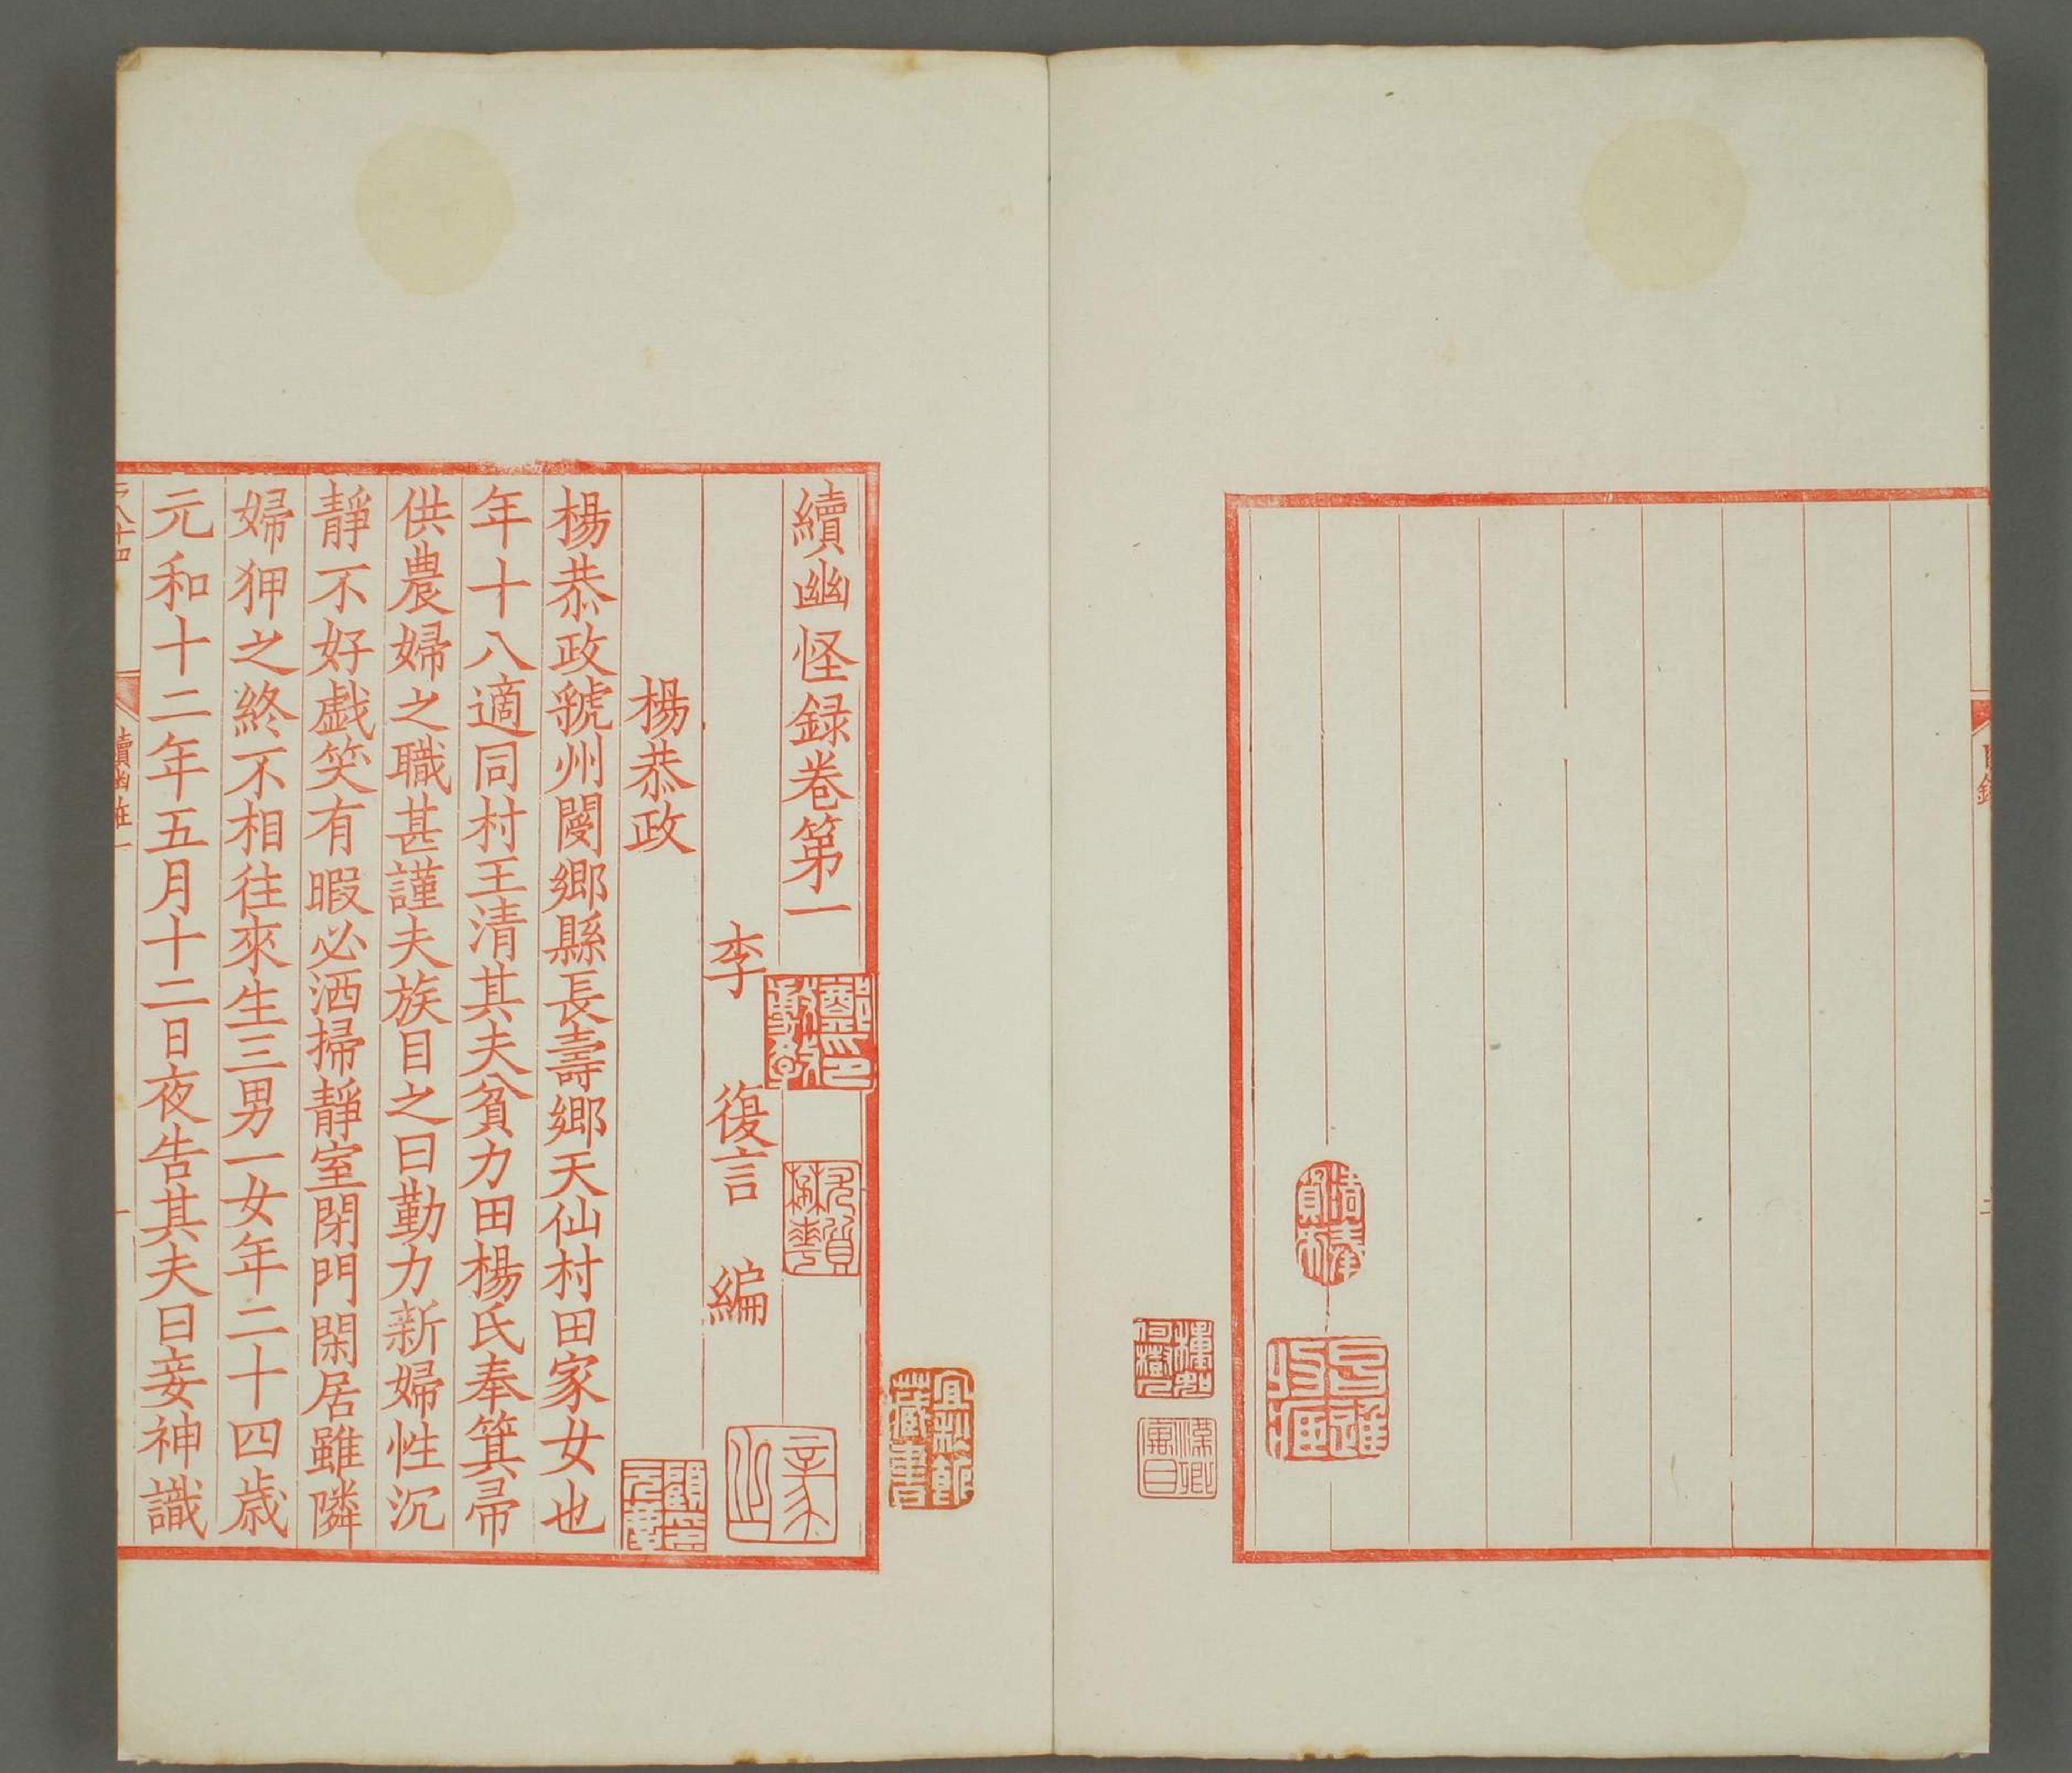 目錄
續幽怪録卷第一
李 復言 編
楊恭政
楊恭政虢州閿鄉縣長壽鄉天仙村田家女也
年十八適同村王清其夫貧力田楊氏奉箕帚
供農婦之職甚謹夫族目之曰勤力新婦性沉
靜不好戱笑有暇必洒掃靜室閉門閑居雖隣
婦狎之終不相往來生三男一女年二十四歳
元和十二年五月十二日夜告其夫曰妾神識
續幽怪一
一
宜秋館藏書